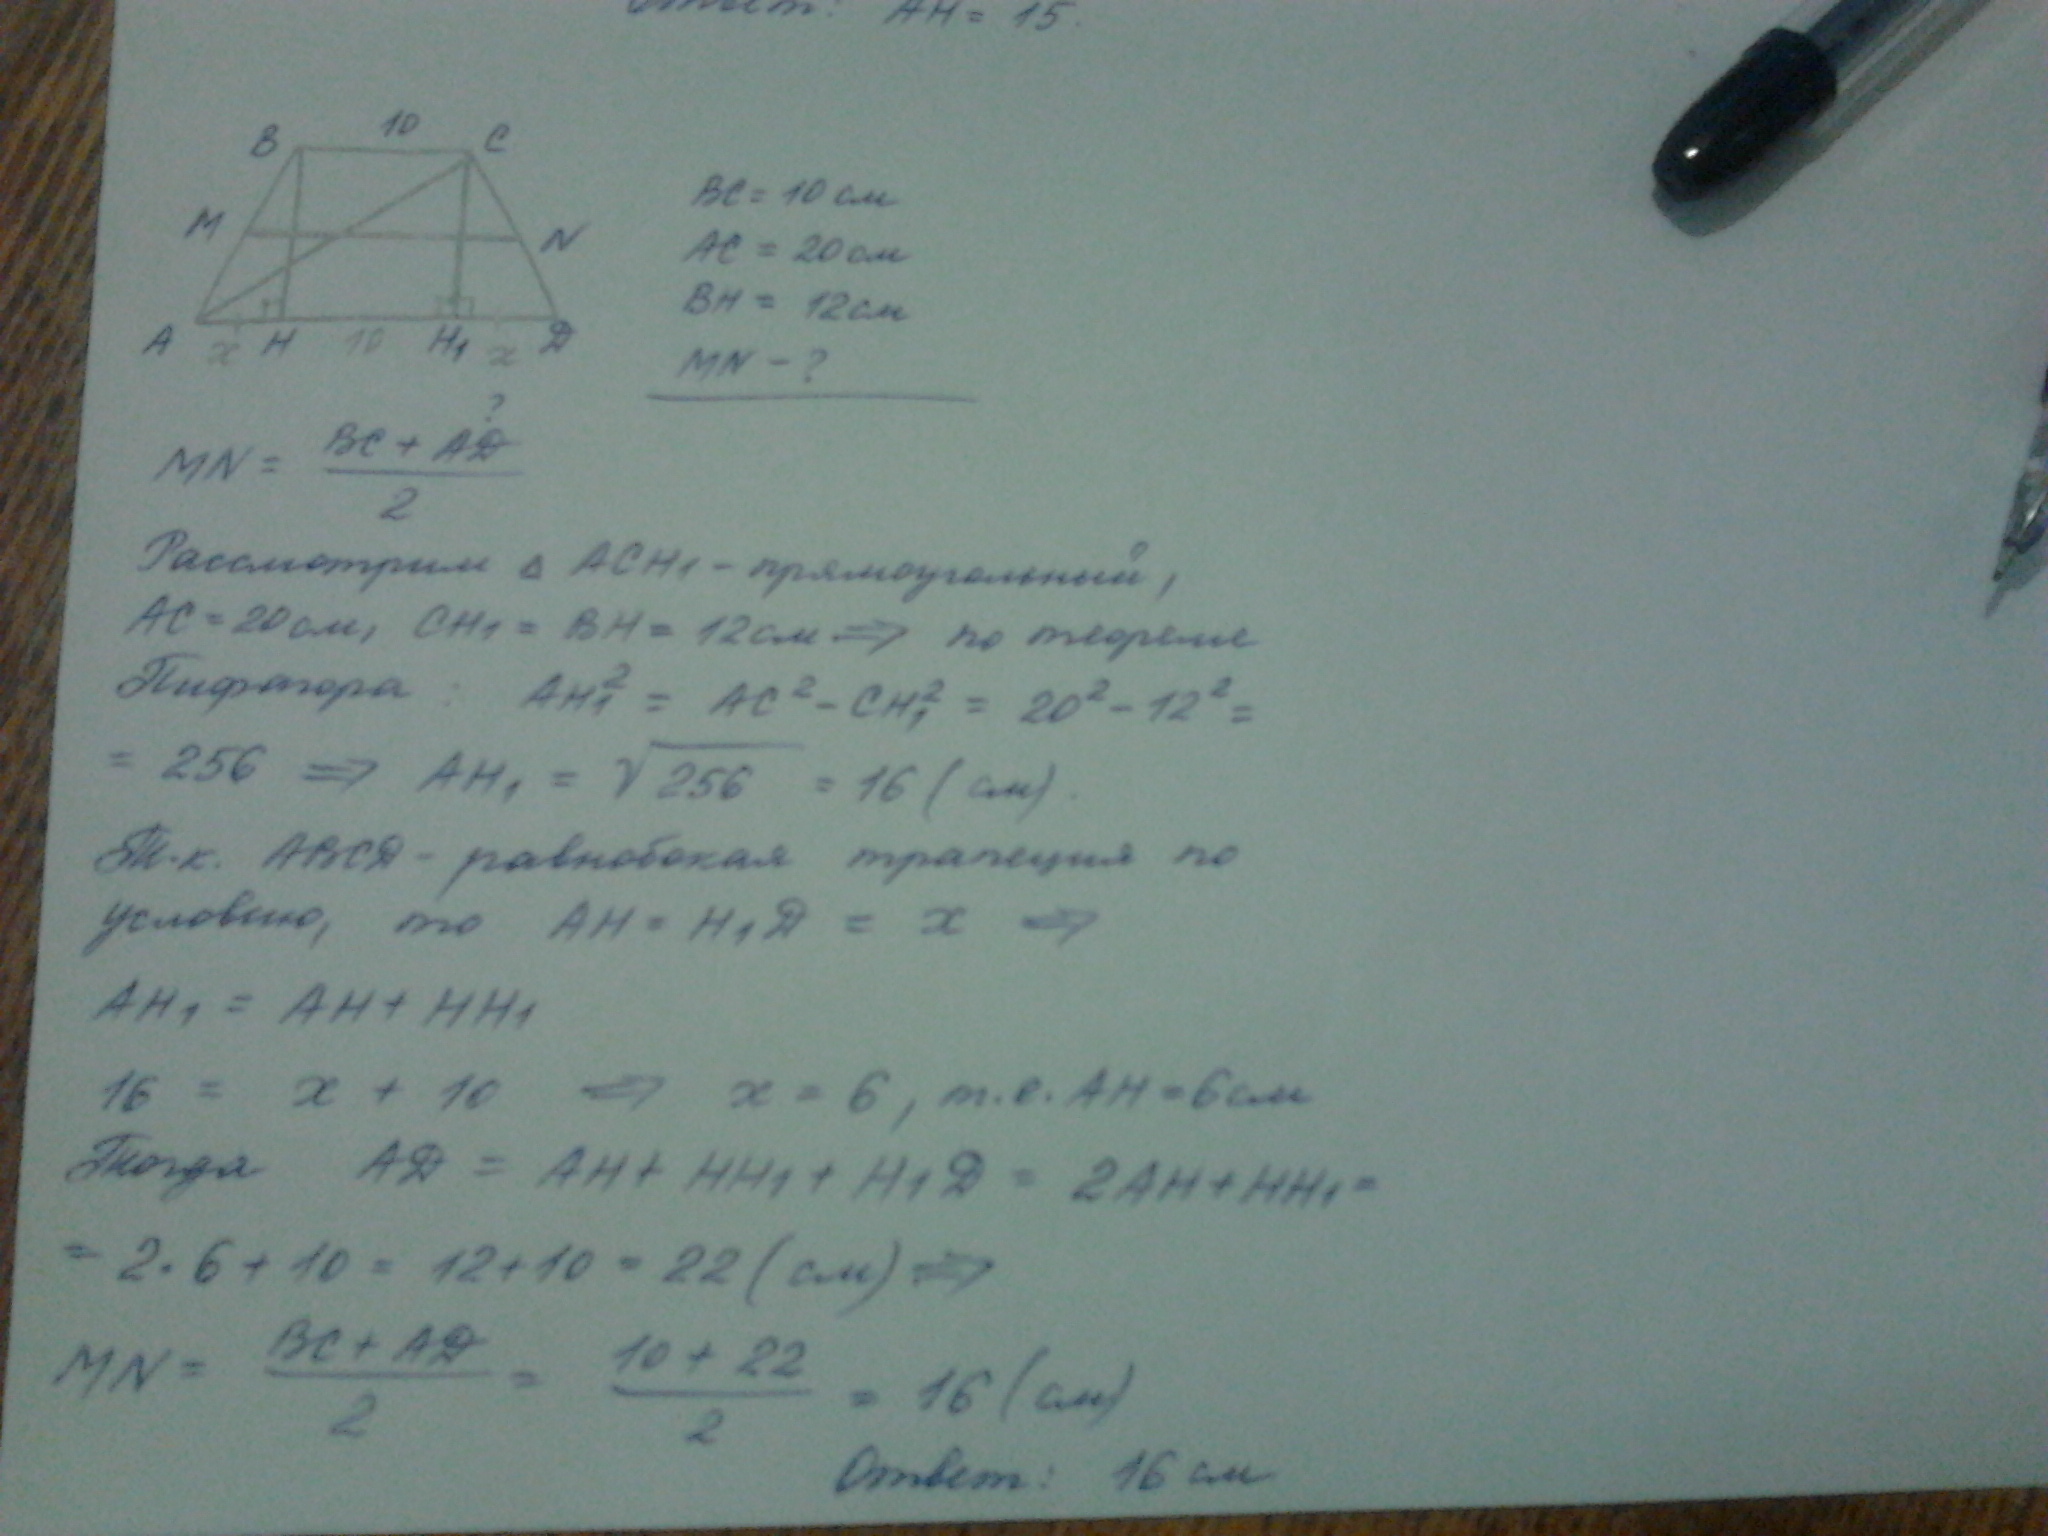 Ответ: AH = 15.
B 10 C
M N
A x H 10 H₁ x D
BC = 10 см
AC = 20 см
BH = 12 см
MN - ?
?
MN = (BC + AD)/2
Рассмотрим △ ACH₁ - прямоугольный,
AC = 20 см, CH₁ = BH = 12 см ⇒ по теореме
Пифагора: AH₁² = AC² - CH₁² = 20² - 12² =
= 256 ⇒ AH₁ = √256 = 16 (см).
Т.к. ABCD - равнобокая трапеция по
условию, то AH = H₁D = x ⇒
AH₁ = AH + HH₁
16 = x + 10 ⇒ x = 6, т.е. AH = 6 см
Тогда AD = AH + HH₁ + H₁D = 2AH + HH₁ =
= 2·6 + 10 = 12 + 10 = 22 (см) ⇒
MN = (BC + AD)/2 = (10 + 22)/2 = 16 (см)
Ответ: 16 см